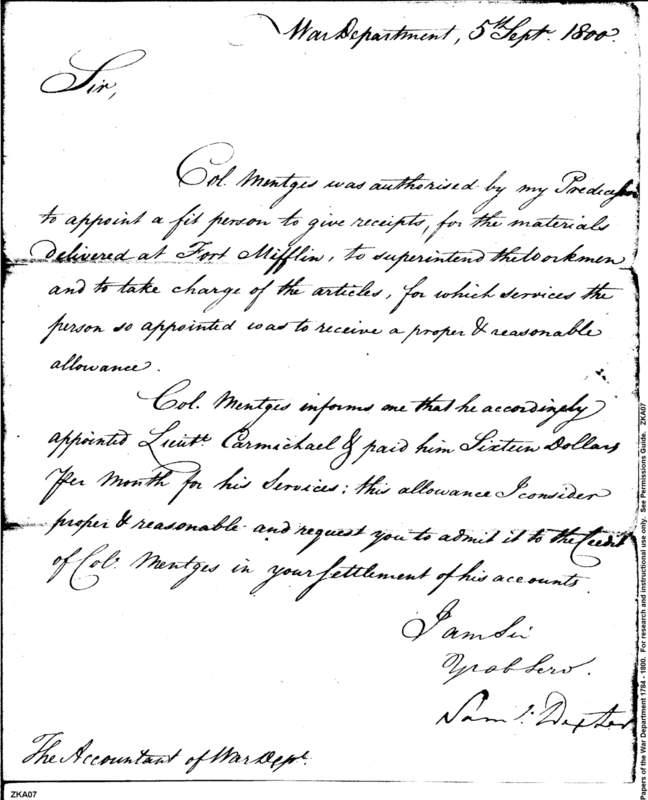 War Department, 5th Sept. 1800.
Sir,
Col. Mentges was authorised by my Predecessor
to appoint a fit person to give receipts, for the materials
delivered at Fort Mifflin, to superintend the Workmen
and to take charge of the articles, for which services the
person so appointed was to receive a proper & reasonable
allowance.
Col. Mentges informs me that he accordingly
appointed Lieut. Carmichael & paid him Sixteen Dollars
Per Month for his Services; this allowance I consider
proper & reasonable and request you to admit it to the Credit
of Col. Mentges in your settlement of his accounts.
I am Sir
Yr ob Serv.
Sam l. Dexter
The Accountant of War Dept.
ZKA07
Papers of the War Department 1784 - 1800. For research and instructional use only. See Permissions Guide. ZKA07